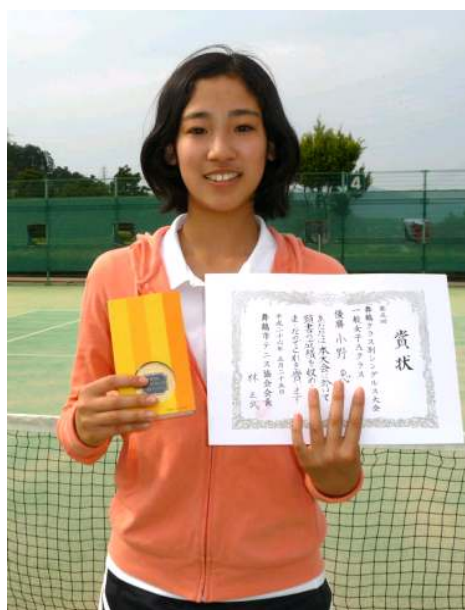 賞状
第五回
舞鶴クラス別シングルス大会
一般女子Aクラス
優勝 小野
あなたは本大会において
頭書の成績を収め
ましたのでこれを賞します
平成二十六年 五月二十五日
舞鶴市テニス協会会長
林 正武
4